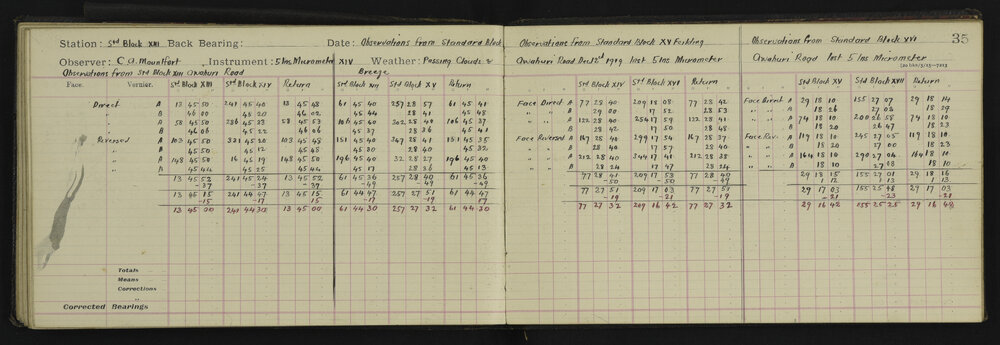 Station: Std Block XIII Back Bearing: Date: Observations from Standard Block Observations from Standard Block XV Feilding Observations from Standard Block XVI 35
Observer: C A Mountfort Instrument: 5 Ins Micrometer XIV Weather: Passing Clouds & Awahuri Road Dec 12th 1919 Inst 5 Ins Micrometer Awahuri Road Inst 5 Ins Micrometer
Observations from Std Block XIII Awahuri Road Breeze
Face. Vernier. Std Block XIII Std Block XIV Return Std Block XIV Std Block XV Return Std Block XIV Std Block XVI Return Std Block XV Std Block XVII Return
Direct A 13 45 50 241 45 40 13 45 48 61 45 40 257 28 57 61 45 41 Face Direct A 77 28 40 209 18 08 77 28 42 Face Direct A 29 18 10 155 27 07 29 18 14
" B 46 00 45 20 46 02 45 44 28 41 45 48 " " B 29 00 17 52 28 53 " " B 18 26 27 08 18 29
" A 58 45 50 286 45 33 58 45 53 106 45 40 302 28 40 106 45 37 " " A 122 28 40 254 17 59 122 28 41 " " A 74 18 10 200 26 58 74 18 10
" B 46 06 45 22 46 06 45 37 28 36 45 41 " " B 28 42 17 50 28 48 " " B 18 20 26 47 18 23
Reversed A 103 45 50 331 45 20 103 45 48 151 45 40 347 28 41 151 45 35 Face Reversed A 167 28 40 299 17 54 167 28 37 Face Rev. A 119 18 10 245 27 05 119 18 10
" B 45 50 45 12 45 48 45 30 28 40 45 32 " " B 28 40 17 57 28 40 " " B 18 20 27 00 18 23
" A 148 45 50 16 45 19 148 45 50 196 45 40 32 28 27 196 45 40 " " A 212 28 40 344 17 41 212 28 38 " " A 164 18 10 290 27 04 164 18 10
" B 45 44 45 25 45 44 45 17 28 36 45 13 " " B 28 24 17 47 28 24 " " B 18 10 27 13 18 10
13 45 52 241 45 24 13 45 52 61 45 36 257 28 40 61 45 36 77 28 41 209 17 53 77 28 40 29 18 15 155 27 01 29 18 16
-37 -37 -37 -49 -49 -49 -50 -50 -49 1 12 1 13 1 13
13 45 15 241 44 47 13 45 15 61 44 47 257 27 51 61 44 47 77 27 51 209 17 03 77 27 51 29 17 03 155 25 48 29 17 03
-15 -17 -15 -17 -19 17 -19 -21 -19 -21 -23 -21
13 45 00 241 44 30 13 45 00 61 44 30 257 27 32 61 44 30 77 27 32 209 16 42 77 27 32 29 16 42 155 25 25 29 16 42
Totals
Means
Corrections
"
Corrected Bearings